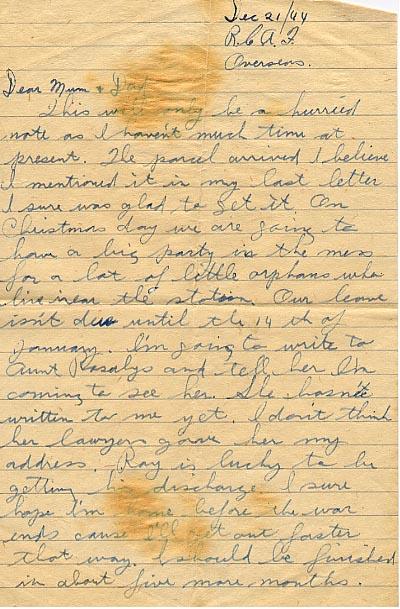 Dec 21/44
R.C.A.F.
Overseas.
Dear Mum & Dad
This will only be a hurried
note as I haven't much time at
present. The parcel arrived I believe
I mentioned it in my last letter
I sure was glad to get it On
Christmas day we are going to
have a big party in the mess
for a lot of little orphans who
live near the station. Our leave
isn't due until the 14 th of
January. I'm going to write to
Aunt Rosalys and tell her I'm
coming to see her. She hasn't
written to me yet. I don't think
her lawyers gave her my
address. Ray is lucky to be
getting his discharge. I sure
hope I'm home before the war
ends cause I'll get out faster
that way. I should be finished
in about five more months.